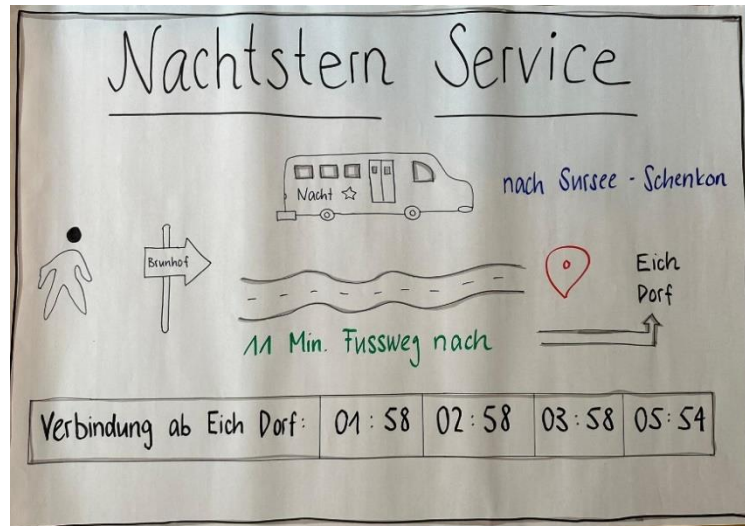 Nachtstern Service
Nacht
nach Sursee - Schenkon
Brunhof
Eich
Dorf
11 Min. Fussweg nach
Verbindung ab Eich Dorf: 01:58 02:58 03:58 05:54